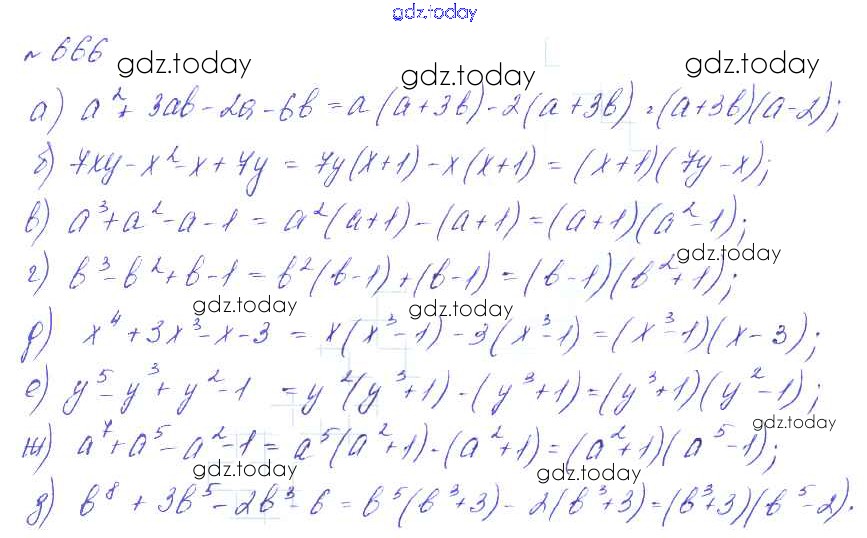 gdz.today
№ 666
gdz.today gdz.today gdz.today
а) a² + 3ab - 2a - 6b = a(a + 3b) - 2(a + 3b) = (a + 3b)(a - 2);
б) 7xy - x² - x + 7y = 7y(x + 1) - x(x + 1) = (x + 1)(7y - x);
в) a³ + a² - a - 1 = a²(a + 1) - (a + 1) = (a + 1)(a² - 1);
gdz.today
г) b³ - b² + b - 1 = b²(b - 1) + (b - 1) = (b - 1)(b² + 1);
gdz.today gdz.today
д) x⁴ + 3x³ - x - 3 = x(x³ - 1) - 3(x³ - 1) = (x³ - 1)(x - 3);
е) y⁵ - y³ + y² - 1 = y²(y³ + 1) - (y³ + 1) = (y³ + 1)(y² - 1);
gdz.today
ж) a⁷ + a⁵ - a² - 1 = a⁵(a² + 1) - (a² + 1) = (a² + 1)(a⁵ - 1);
gdz.today gdz.today
д) b⁸ + 3b⁵ - 2b³ - 6 = b⁵(b³ + 3) - 2(b³ + 3) = (b³ + 3)(b⁵ - 2).